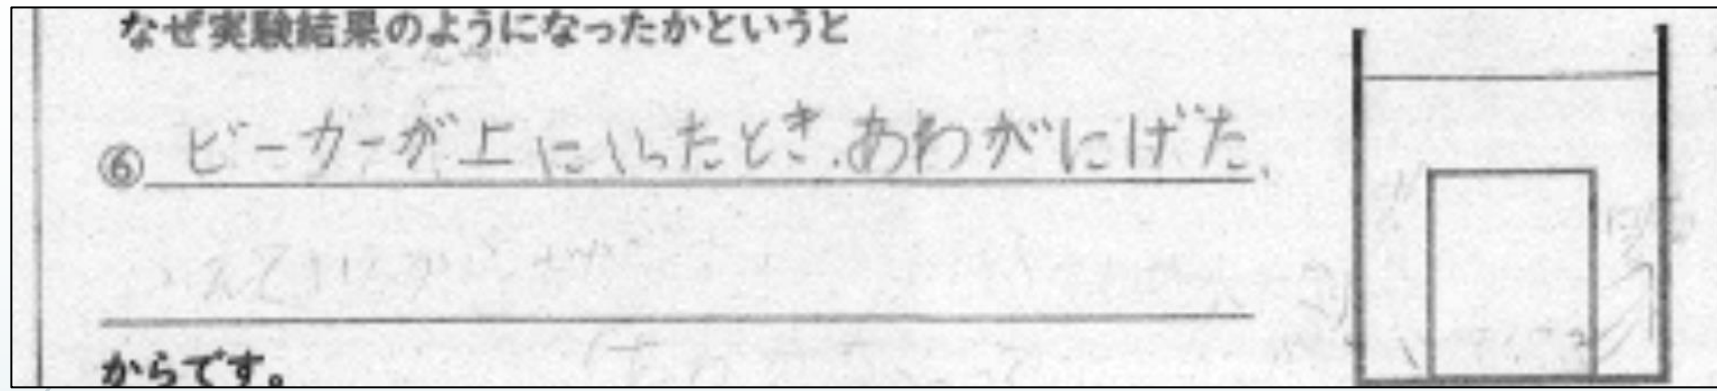 なぜ実験結果のようになったかというと
⑥ ビーカーが上にいったとき、あわがにげた、
からです。